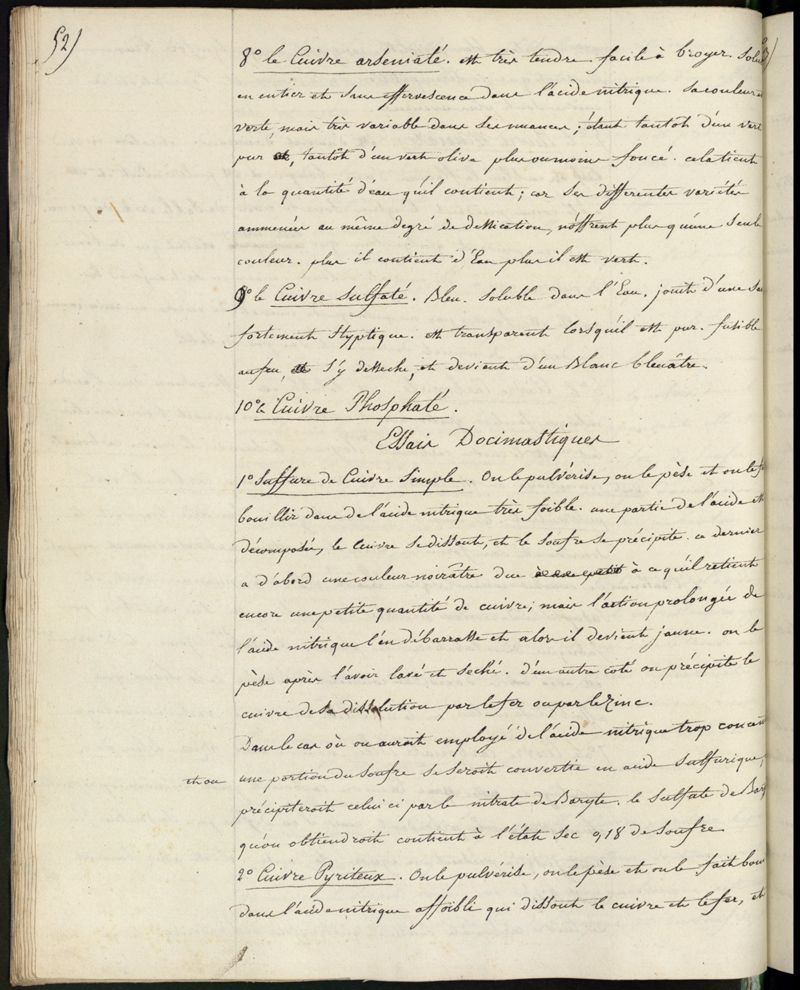 52)
8° le Cuivre arseniaté. est très tendre facile à broyer. Solu
en entier et sans effervescence dans l'acide nitrique. sa couleur e
verte, mais très variable dans ses nuances, étant tantôt d'un vert
pur, tantôt d'un vert olive plus ou moins foncé. cela tient
à la quantité d'eau qu'il contient; car ses differentes variétés
ammenées au même degré de dessication, n'offrent plus qu'une seule
couleur. plus il contient d'Eau plus il est vert.
9° le Cuivre Sulfaté. Bleu. Soluble dans l'Eau. jouit d'une Sa
fortement Styptique. est transparent lorsqu'il est pur. fusible
au feu, s'y desseche, et devient d'un Blanc bleuâtre.
10° le Cuivre Phosphaté.
Essais Docimastiques
1° Sulfure de Cuivre Simple. On le pulvérise, on le pèse et on le f
bouillir dans de l'acide nitrique très foible. une partie de l'acide est
décomposée, le Cuivre se dissout, et le soufre se précipite. ce dernier
a d'abord une couleur noirâtre due à ce qu'il retient
encore une petite quantité de cuivre; mais l'action prolongée de
l'acide nitrique l'en débarrasse et alors il devient jaune. on le
pèse après l'avoir lavé et seché. d'un autre coté on précipite le
cuivre de sa dissolution par le fer ou par le Zinc.
Dans le cas où on auroit employé de l'acide nitrique trop concen
une portion du Soufre se seroit convertie en acide Sulfurique,
et on
précipiteroit celui ci par le nitrate de Baryte. le Sulfate de Bary
qu'on obtiendroit contient à l'état sec 0,18 de Soufre
2° Cuivre Pyriteux. On le pulvérise, on le pèse et on le fait bou
dans l'acide nitrique affoibli qui dissout le cuivre et le fer, et